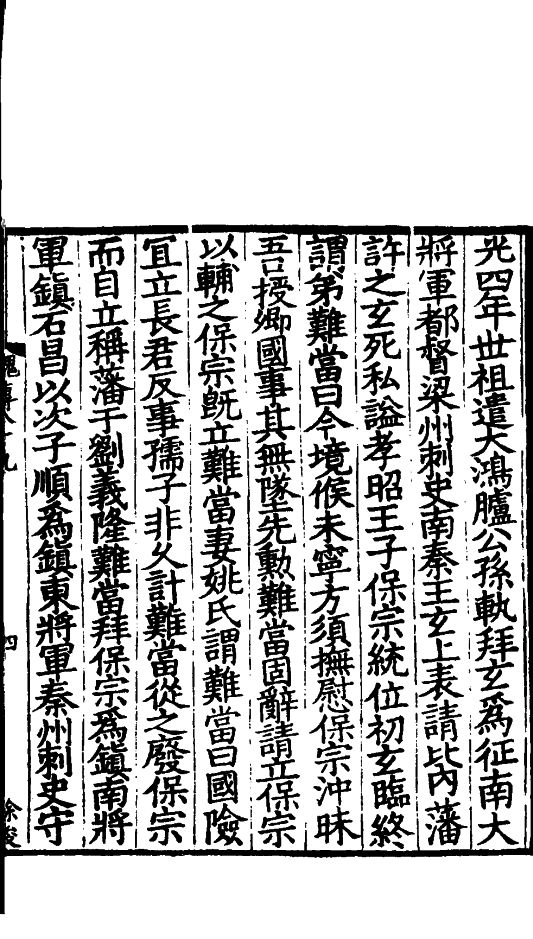 光四年世祖遣大鴻臚公孫軌拜玄爲征南大
將軍都督梁州刺史南秦王玄上表請比內藩
許之玄死私謚孝昭王子保宗統位初玄臨終
謂弟難當曰今境候未寧方須撫慰保宗沖昧
吾授卿國事其無墜先勳難當固辭請立保宗
以輔之保宗旣立難當妻姚氏謂難當曰國險
宜立長君反事孺子非久計難當從之廢保宗
而自立稱藩于劉義隆難當拜保宗爲鎮南將
軍鎮石昌以次子順爲鎮東將軍秦州刺史守
魏傳八十九
四
徐夌